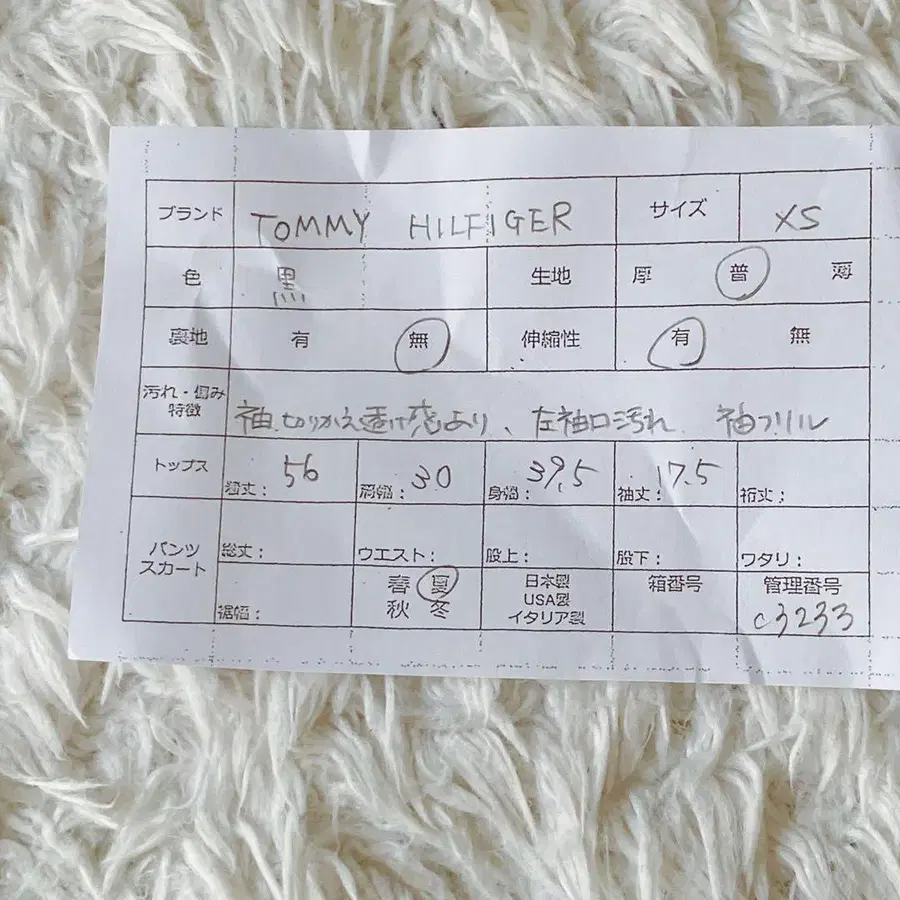 ブランド TOMMY HILFIGER サイズ XS
色 黒 生地 厚 普 薄
裏地 有 無 伸縮性 有 無
汚れ・傷み
特徴 袖切りかえ透け感あり、左袖口汚れ 袖フリル
トップス 着丈: 56 肩幅: 30 身幅: 39.5 袖丈: 17.5 裄丈:
パンツ
スカート 総丈: ウエスト: 股上: 股下: ワタリ:
裾幅: 春 夏 日本製 箱番号 管理番号
秋 冬 USA製 c3233
イタリア製